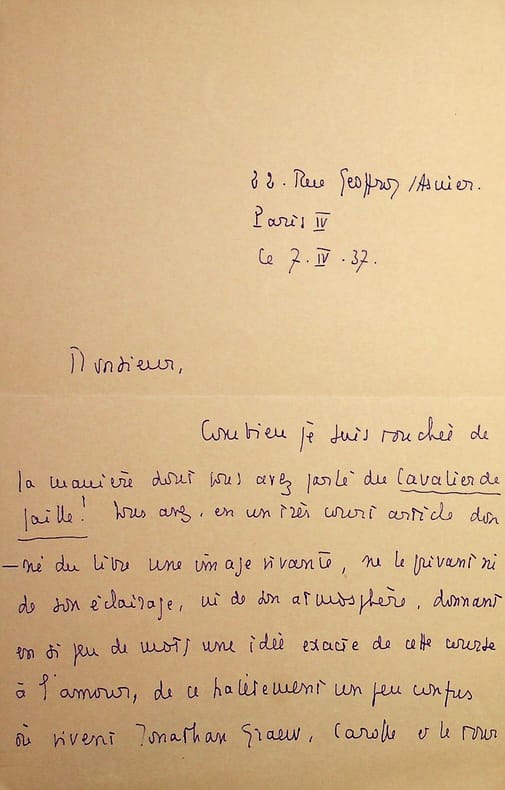 22. Rue Geoffroy l'Asnier.
Paris IV
Ce 7. IV. 37.
Monsieur,
Combien je suis touchée de
la manière dont vous avez parlé du Cavalier de
Paille! Vous avez, en un très court article don
-né du livre une image vivante, ne le privant ni
de son éclairage, ni de son atmosphère, donnant
en si peu de mots une idée exacte de cette course
à l'amour, de ce halètement un peu confus
où vivent Jonathan Graew, Carolle et le